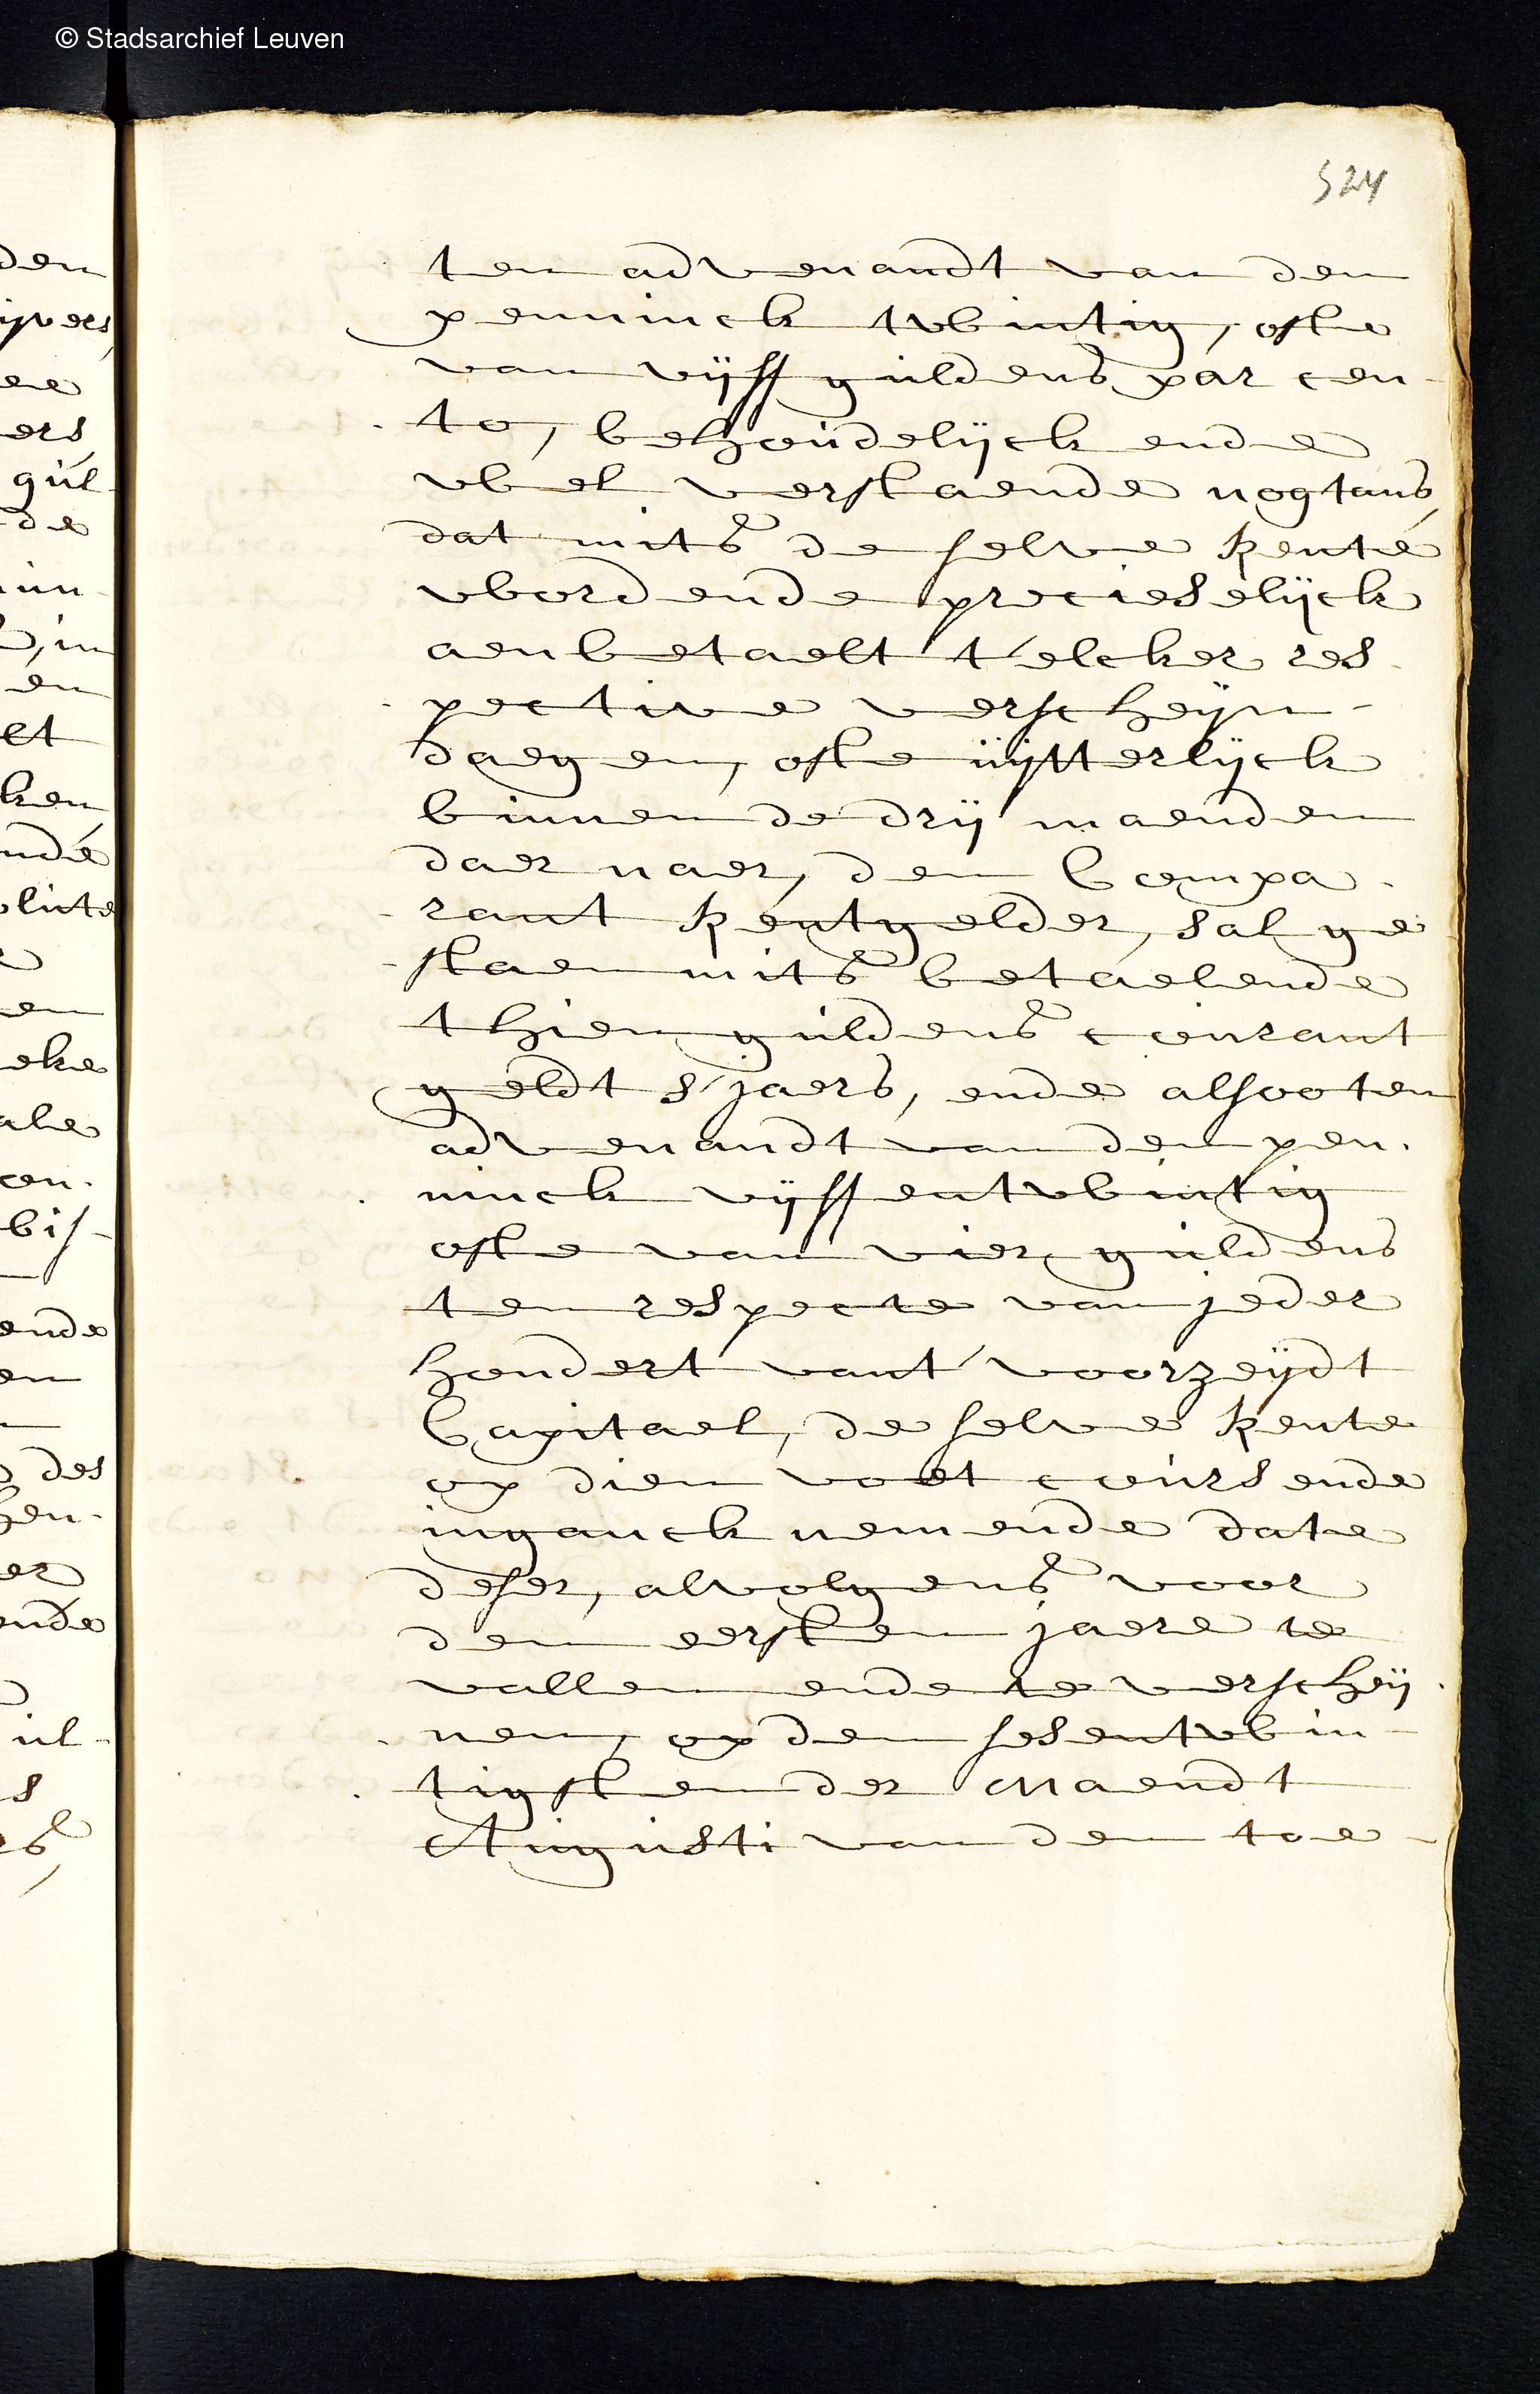 © Stadsarchief Leuven
524
ten advenandt van den
penninck twintig, ofte
van vijff guldens par cen-
to, behoudelijck ende
wel verstaende nogtans,
dat mits de selve Rente
wordende precieselijck
aenbetaelt t'elcker res-
pective verscheijn-
daegen, ofte uijtterlijck
binnen de drij maenden
daer naer, den Compa-
rant Rentgelder, sal ge-
staen mits betaelende
thien guldens courant
geldt s'jaers, ende alsoo ten
advenandt van den pen-
ninck vijffentwintig
ofte van vier guldens
ten respecte van jeder
hondert vant' voorzeijdt
Capitael, de selve Rente
op dien voet cours ende
inganck nemende date
deser, alvolgens voor
den eersten jaere te
vallen ende te verscheij-
nen, op den sesentwin-
tigsten der Maendt
Augusti van den toe-
den
ers
gul-
de
en
et
ken
eke
ale
con-
bis-
ende
en
des
er
ende
ul-
s